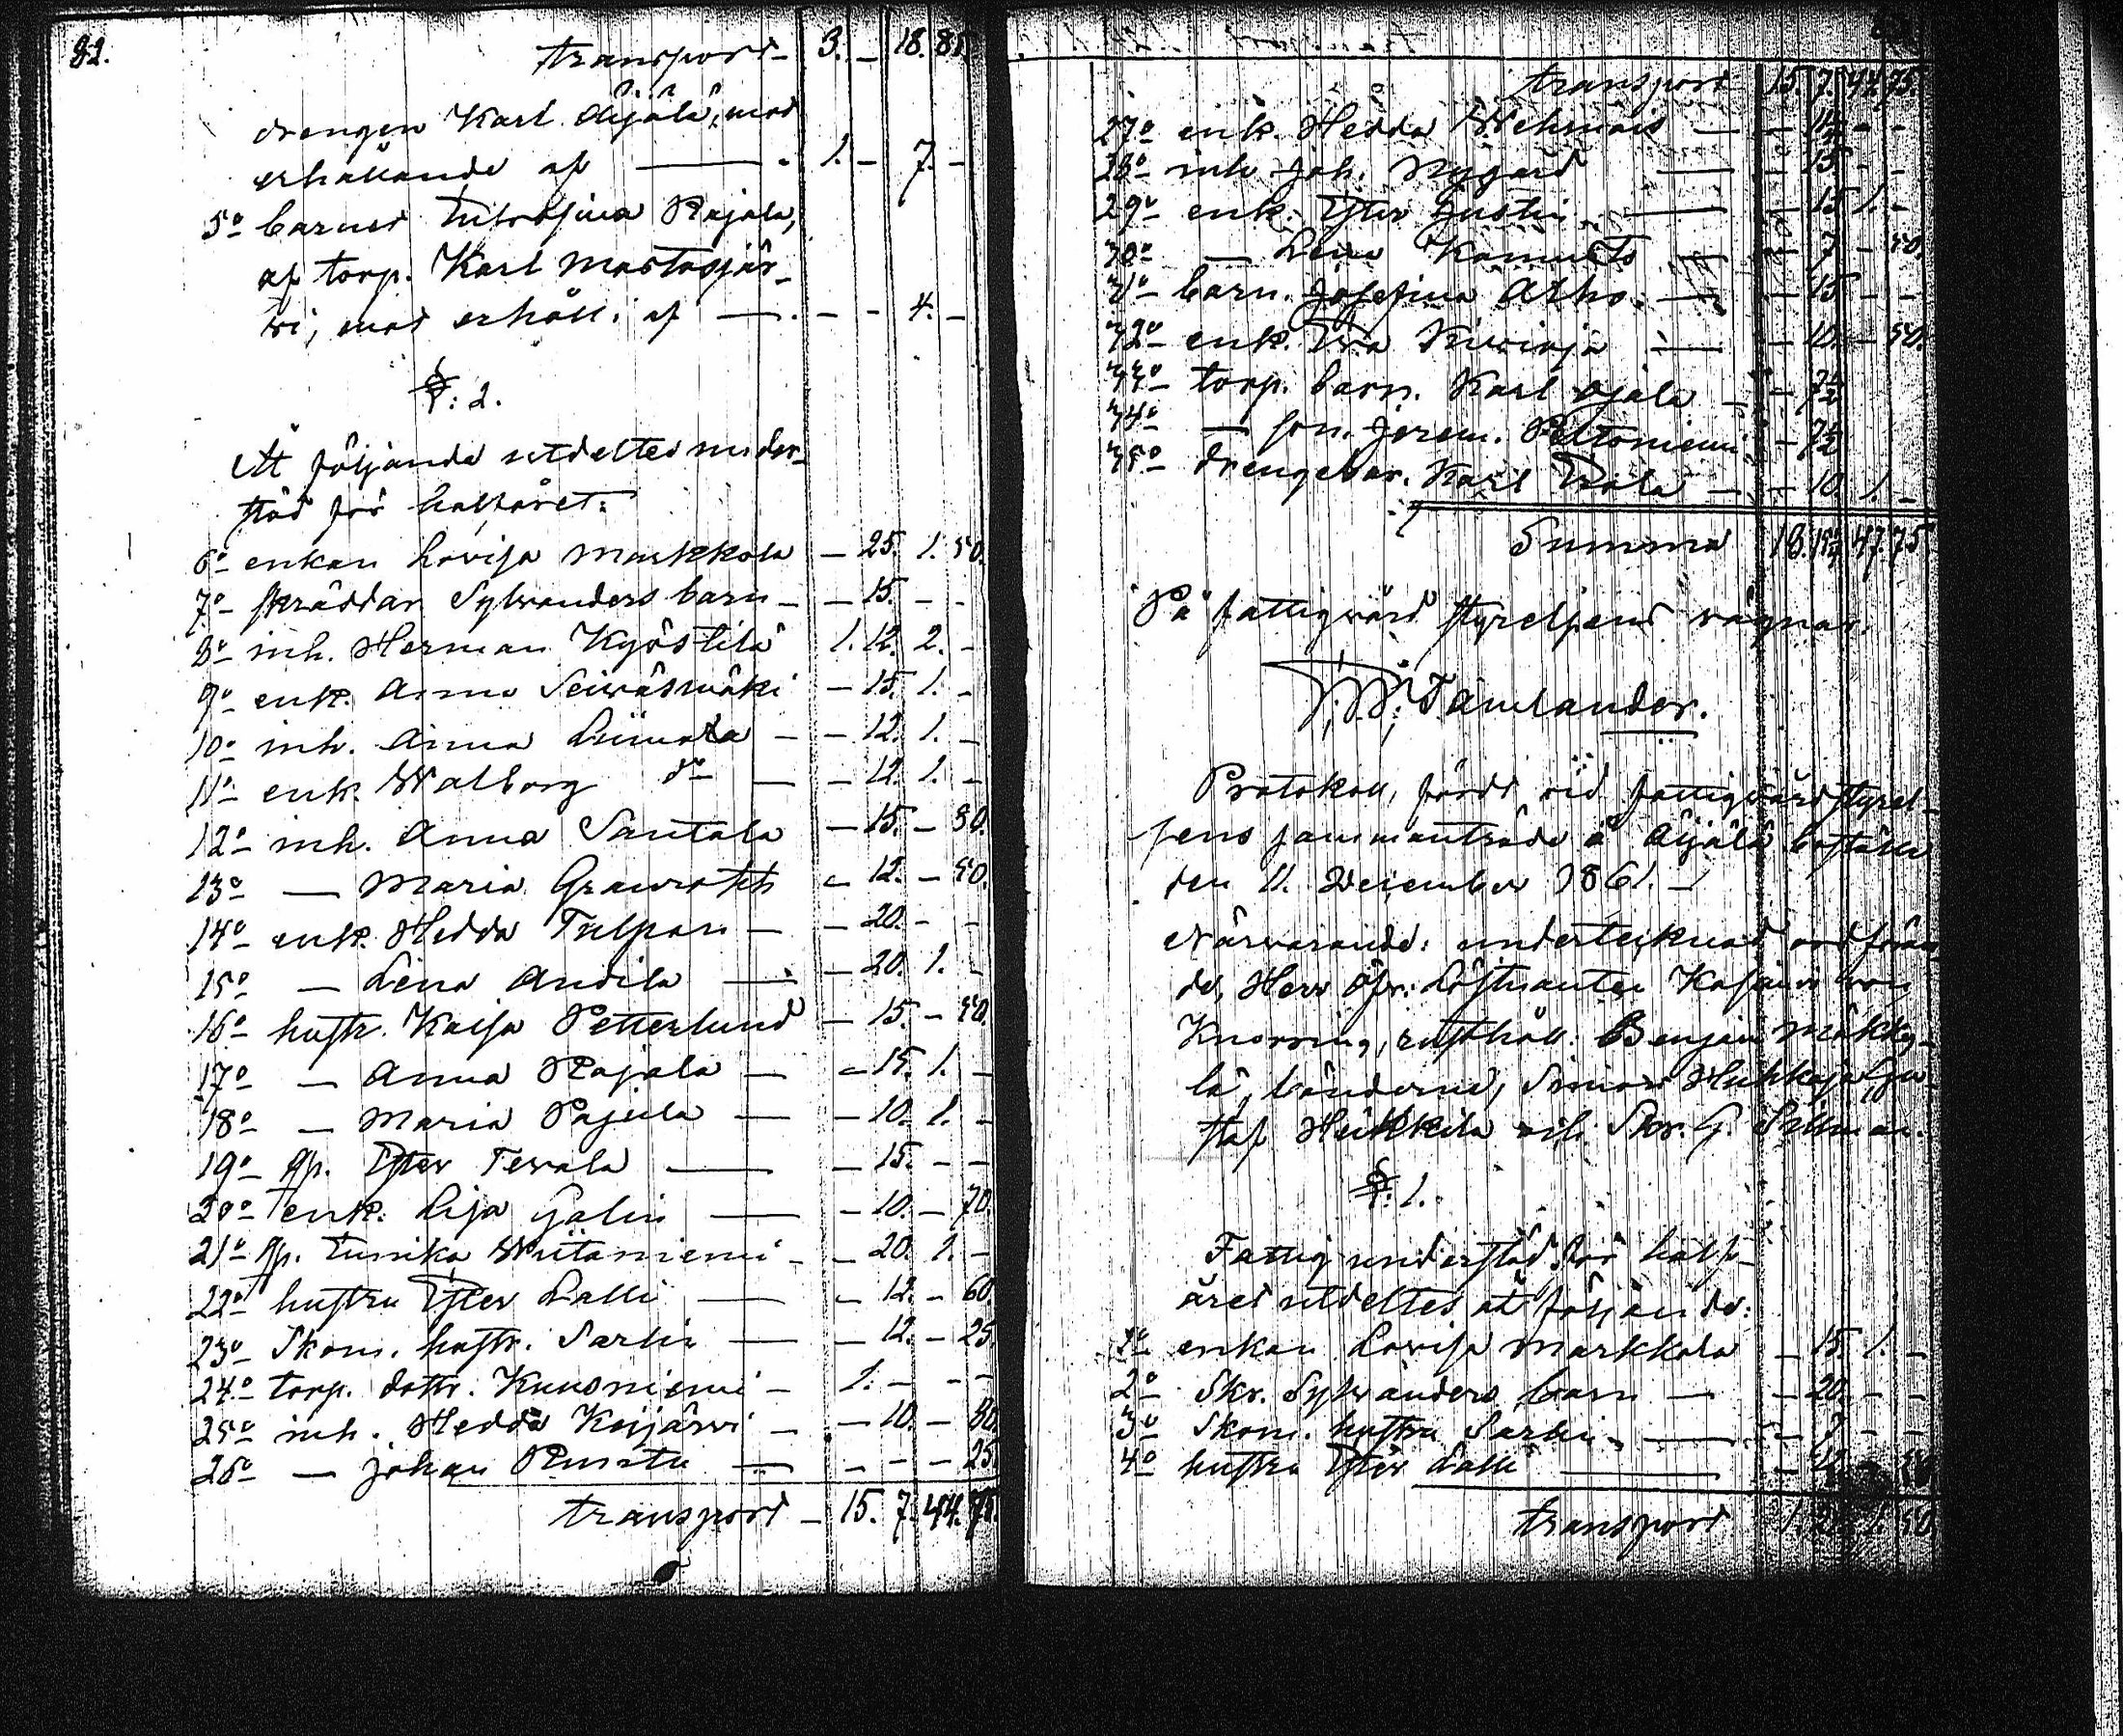 82.
transport - 3. - 18. 85.
drengen Karl Äijälä, mot
erhållande af - 1. - 7. -
5o barnet Eufrosina Rajala,
af torp. Karl Mastosjär-
vi, mot erhåll. af - - - 4. -
§: 2.
Åt följande utdeltes under-
stöd för halfåret:
6o enkan Lovisa Markkola - 25. 1. 50.
7o skräddar Sylvanders barn - 15. - -
8o inh. Herman Kyöstilä 1. 12. 2. -
9o enk. Anna Seiväsmäki - 15. 1. -
10o inh. Anna Liimata - 12. 1. -
11o enk. Walborg do - 12. 1. -
12o inh. Anna Santala - 15. - 80.
13o - Maria - 12. - 50.
14o enk. Hedda Tulpan - 20. - -
15o - Lena Andila - 20. 1. -
16o hustr. Kaisa Petterlund - 15. - 50.
17o - Anna Rajala - 15. 1. -
18o - Maria Pajula - 10. 1. -
19o Ester Tevala - 15. - -
20o enk. Lisa Galin - 10. - 70.
21o Eunika Wiitaniemi - 20. 1. -
22o hustru Ester Lalli - 12. - 60.
23o Skom. hustr. Sarlin - 12. - 25.
24o torp. dottr. Kuusniemi - 1. - - -
25o inh. Hedda Keijärvi - 10. - 80.
26o - Johan - - - 25.
transport - 15. 7. 44. 75.
transport 15. 7. 44. 75.
27o enk. Hedda - -
28o inh. Joh. Nygård - 15. - -
29o enk. Ester Justin - 15 1. -
30o - Lena - 7 - 50.
31o barn. Josefina Alho - 15 - -
32o enk. Eva - 10. - 50.
33o torp. barn. Karl Ojala - 7½
34o - son. Jerem. Peltoniemi - 7½
35o drengebar. Karl - 10. 1. -
Summa 18. 47. 75.
På fattigvård styrelsens vägnar:
Tämlander.
Protokoll, fördt vid fattigvård styrel-
sens sammanträde å Äijälä boställe
den 11. December 1861. -
Närvarande: undertecknad ordföran-
de, Herr Öfv: Löjtnanten Kasimir von
Knorring, rusthåll: Benjam Mäkky-
lä, bönderne, Simon Huhkaja, Gu-
staf Heikkilä och Skr. G. Sillman.
§: 1.
Fattig understöd för half-
året utdeltes åt följande:
1o enkan Lovisa Markkola - 15. 1. -
2o Skr. Sylvanders barn - 20. - -
3o Skom. hustru Sarlin - - -
4o hustru Ester Lalli -
transport 1. 1. 50